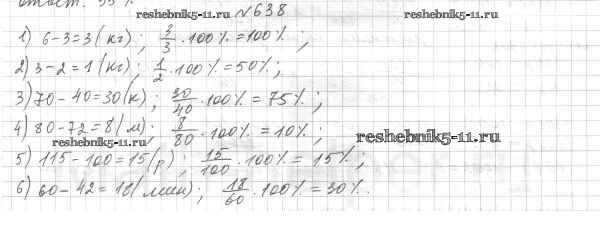 ответ. 55%
reshebnik5-11.ru №638 reshebnik5-11.ru
1) 6-3=3(кг); 3/3 · 100% = 100%;
2) 3-2=1(кг); 1/2 · 100% = 50%;
3) 70-40=30(к); 30/40 · 100% = 75%;
4) 80-72=8(м); 8/80 · 100% = 10%;
reshebnik5-11.ru reshebnik5-11.ru
5) 115-100=15(р); 15/100 · 100% = 15%;
6) 60-42=18(мин); 18/60 · 100% = 30%.